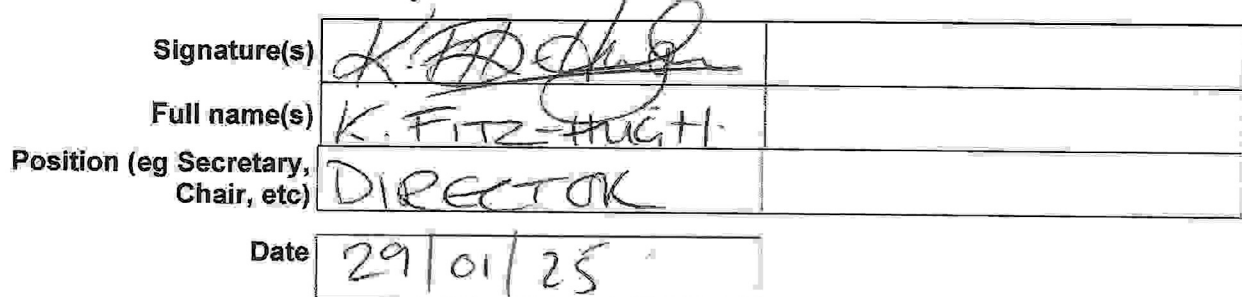 Signature(s) K. Fitz-Hugh
Full name(s) K. FITZ-HUGH.
Position (eg Secretary,
Chair, etc) DIRECTOR
Date 29/01/25